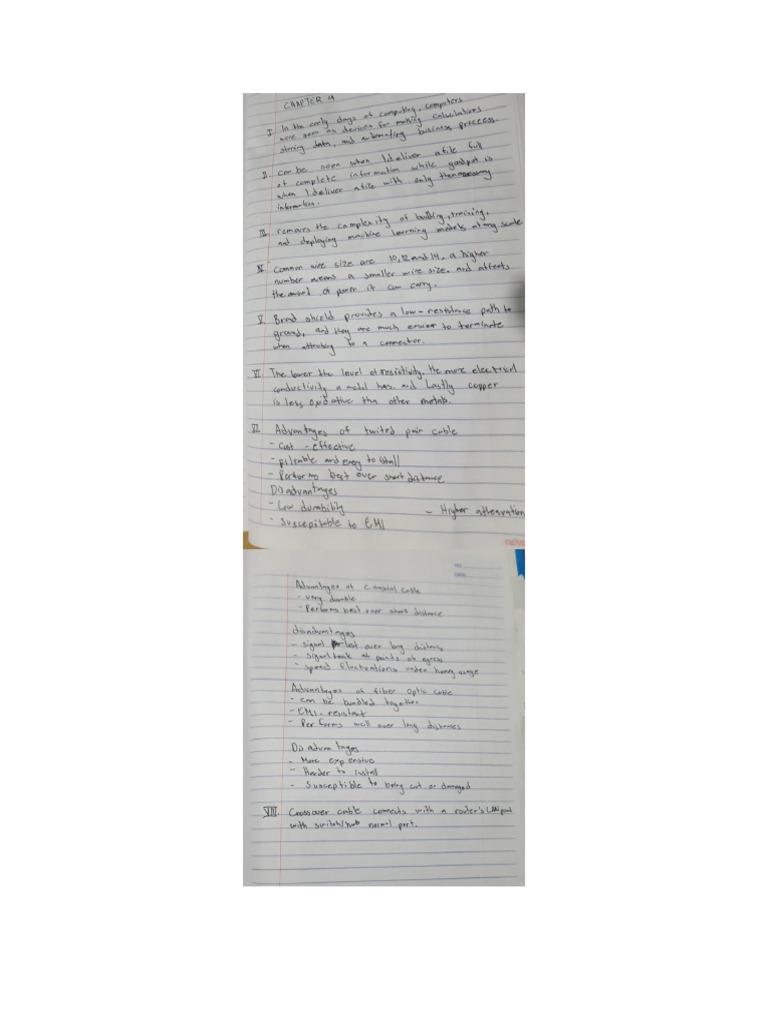 CHAPTER 4
I. In the early days of computing, computers
were seen as devices for making calculations
storing data, and automating business proccess.
II. can be seen when I deliver a file full
of complete information while goodput is
when I deliver a file with only the necessary
information.
III. removes the complexity of building, training,
and deploying machine learning models at any scale
IV. Common wire size are 10, 12 and 14, a higher
number means a smaller wire size, and affects
the amount of power it can carry.
V. Braid shield provides a low-resistance path to
ground, and they are much easier to terminate
when attaching to a connector.
VI. The lower the level of resistivity, the more electrical
conductivity a metal has. and Lastly copper
is less oxidative than other metals.
VII. Advantages of twisted pair cable
- Cost-effective
- pliable and easy to install
- Performs best over short distance
Disadvantages
- Low durability
- Higher attenuation
- Susceptible to EMI
Advantages of Coaxial cable
- very durable
- Performs best over short distance
disadvantages
- signal lost over long distance
- signal leak at points of egress
- speed fluctuations under heavy usage
Advantages of fiber optic cable
- can be bundled together
- EMI-resistant
- Performs well over long distances
Disadvantages
- More expensive
- Harder to install
- Susceptible to being cut or damaged
VIII. Crossover cable connects with a router's LAN port
with switch/hub normal port.